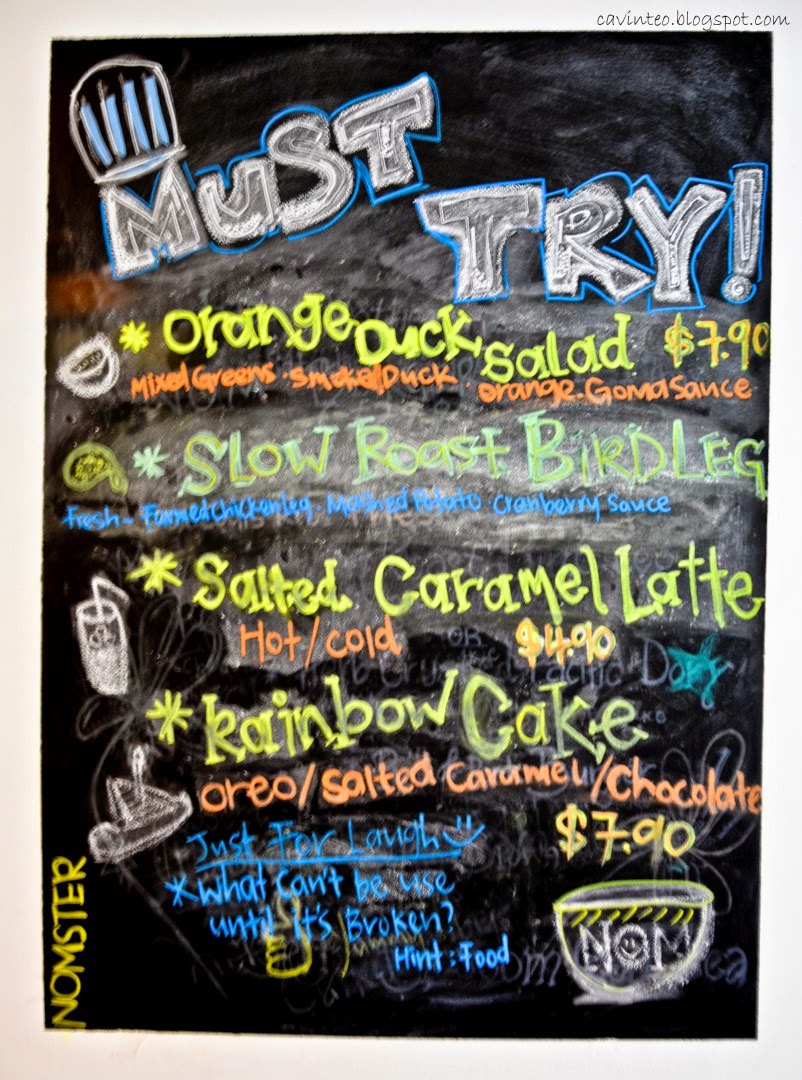 cavinteo.blogspot.com
MUST
TRY!
* Orange Duck Salad $7.90
Mixed Greens · Smoked Duck · Orange · Goma Sauce
* SLOW ROAST BIRD LEG
Fresh - Farmed Chicken Leg · Mashed Potato · Cranberry Sauce
* Salted Caramel Latte
Hot/cold $4.90
OR
Pacific Dory
* Rainbow Cake
Oreo/Salted Caramel/Chocolate
$7.90
Just For Laugh
* What Can't be use
until it's Broken?
Hint : Food
NOM
NOMSTER